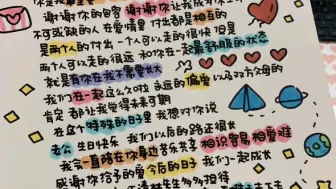 你是我最重要
谢谢你的包容 谢谢你让我成为
不可或缺的人 在爱情里 付出都是相互的
是两个人的付出 一个人可以走的很快 但是
两个人可以走的很远 和你在一起最舒服的状态
就是有你在我不需要伪
我们在一起这么久啦 永远的偏爱 以及对方父母的
肯定 都让我觉得未来可期
在这个特殊的日子里 我想对你说
老公 生日快乐 我们以后的路还很长
我会一直陪在你身边 苦乐共享 相识容易相爱难
感谢你给予的爱 今后的日子 我们一起成长
先生多多担待